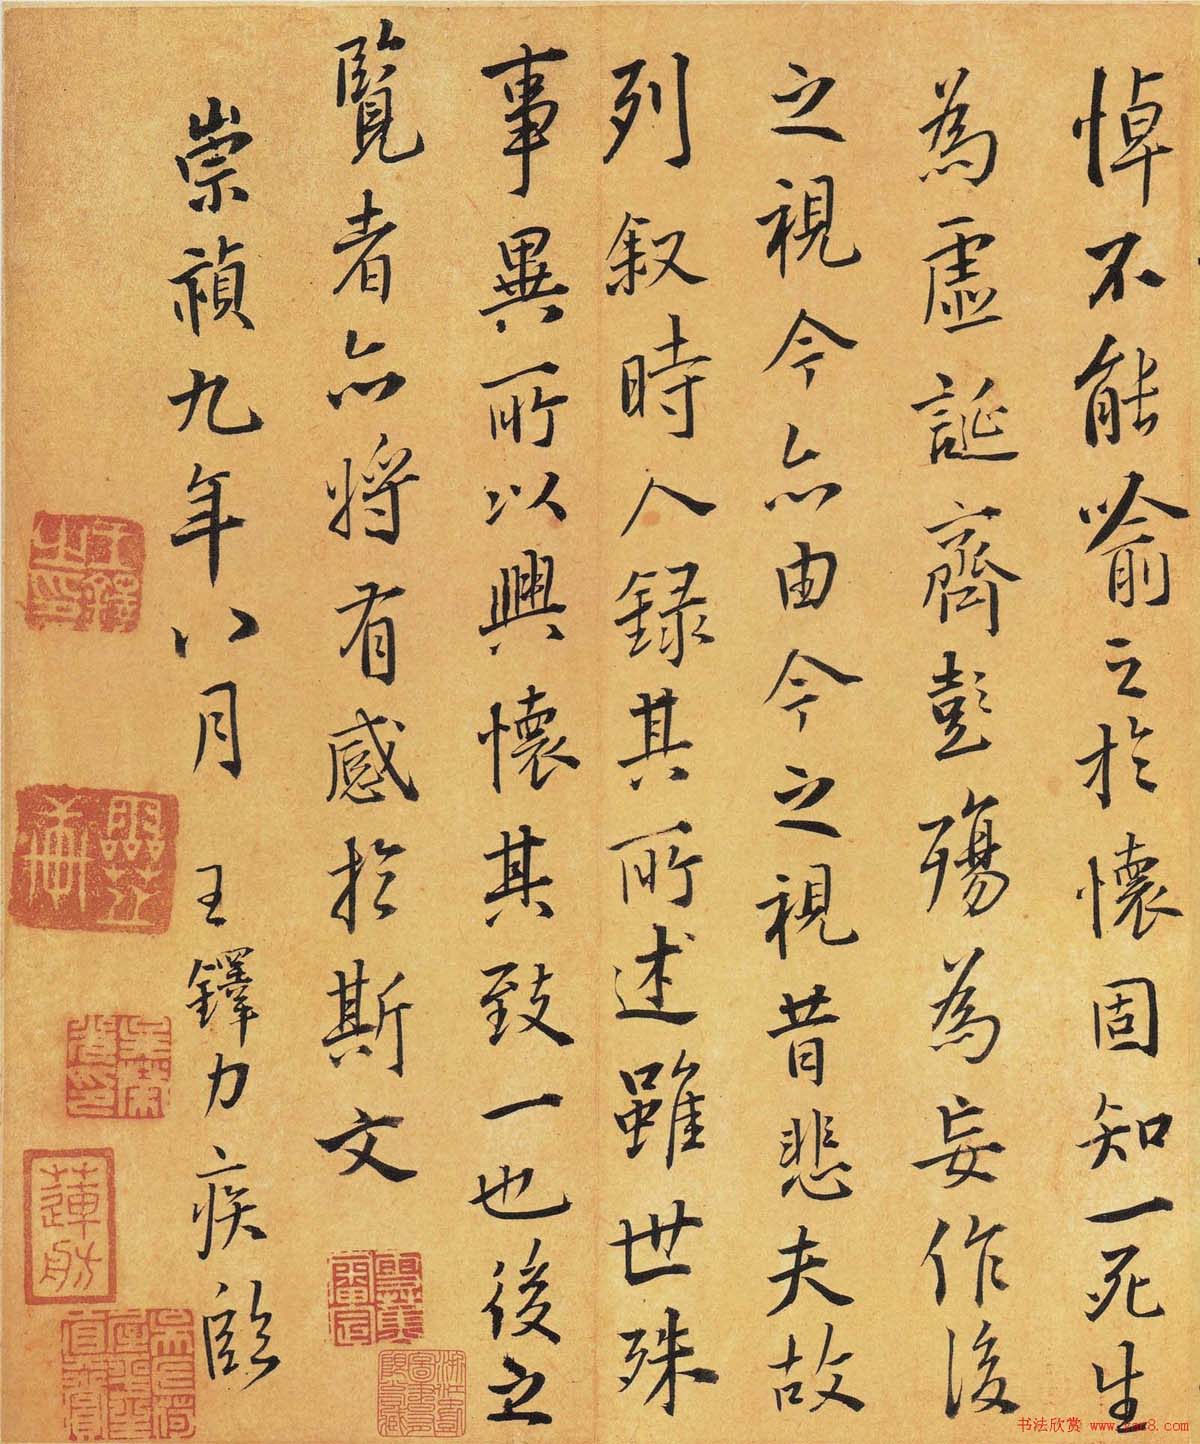 悼不能喻之於懷固知一死生
為虛誕齊彭殤為妄作後
之視今亦由今之視昔悲夫故
列叙時人録其所述雖世殊
事異所以興懷其致一也後之
覽者亦將有感於斯文
崇禎九年八月 王鐸力疾臨
王鐸之印
蓮舫
书法欣赏 www.yac8.com